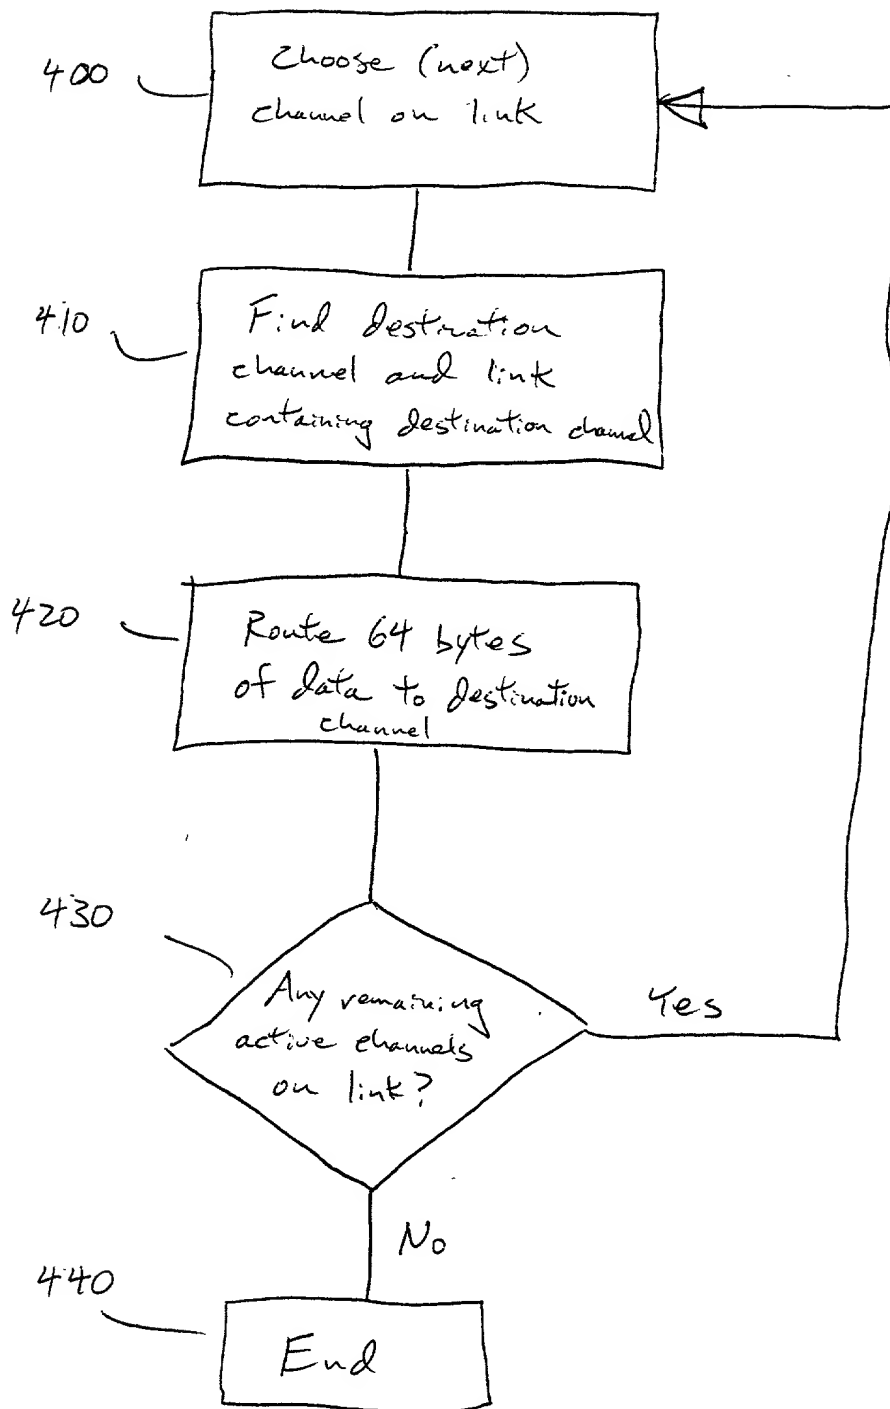 400
Choose (next)
channel on link
410
Find destination
channel and link
containing destination channel
420
Route 64 bytes
of data to destination
channel
430
Any remaining
active channels
on link?
Yes
No
440
End